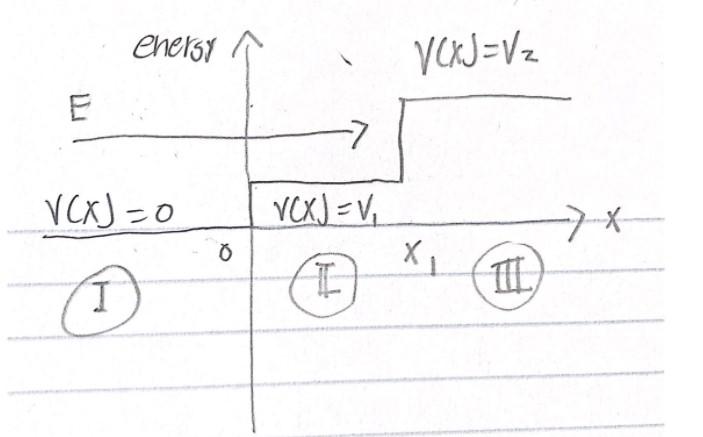 energy
V(x)=V₂
E
V(x)=0
V(x)=V₁
x
0
x₁
I
II
III